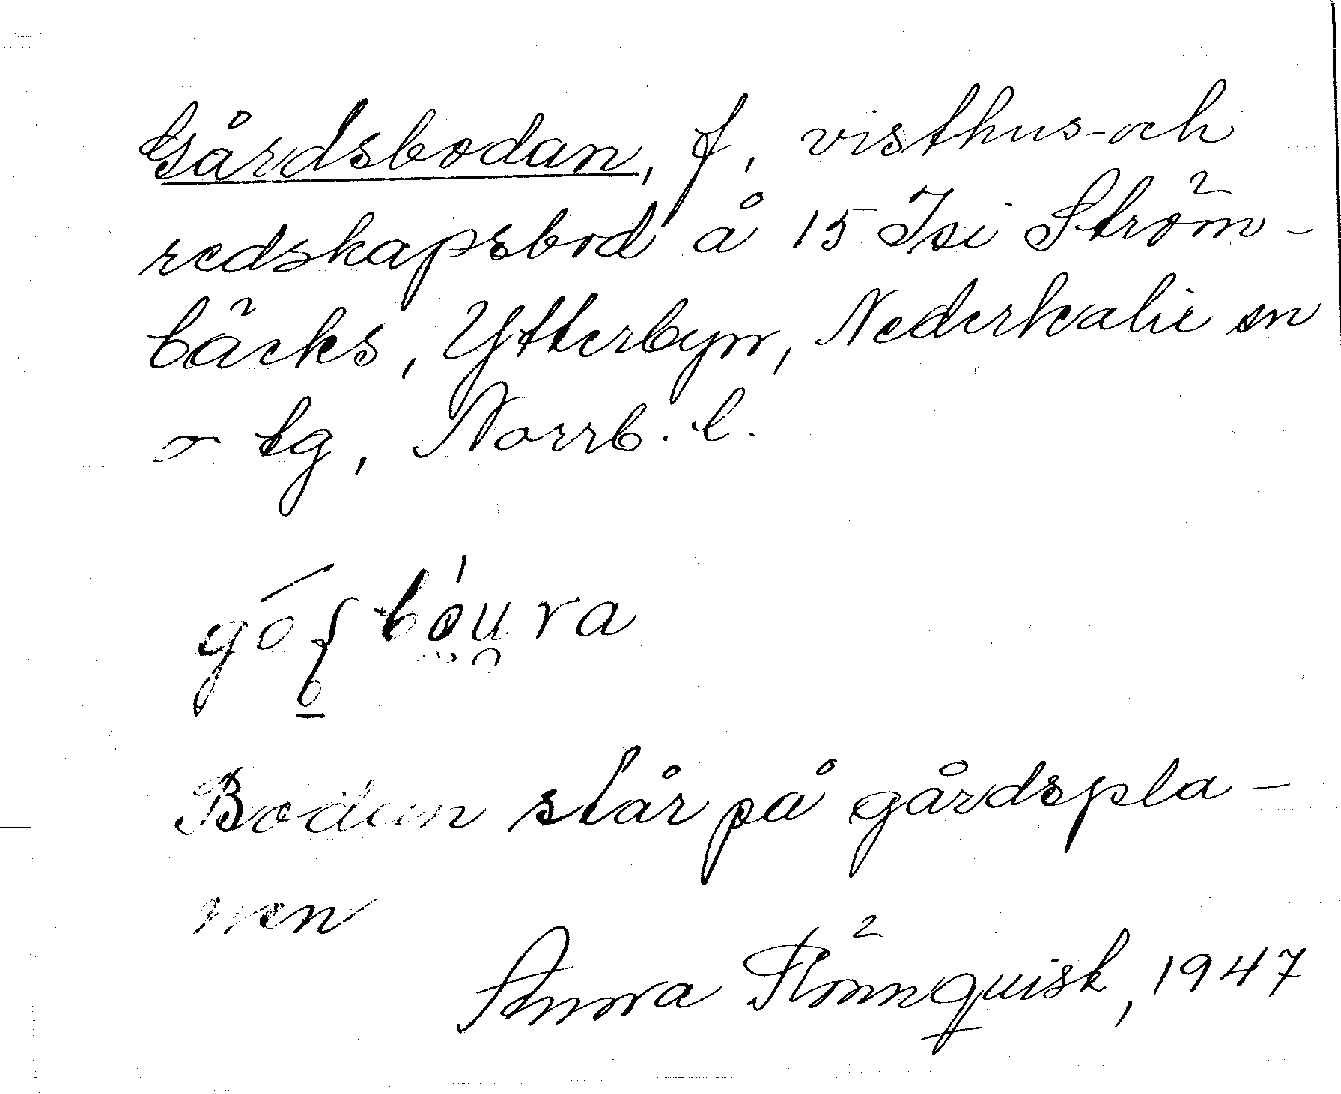 Gårdsbodan, f, visthus- och
redskapsbod å 15 Isi Ström-
bäcks, Ytterbyn, Nederkalix sn
o tg, Norrb. l.
Bodan står på gårdspla-
nen
Anna Rönnquist, 1947